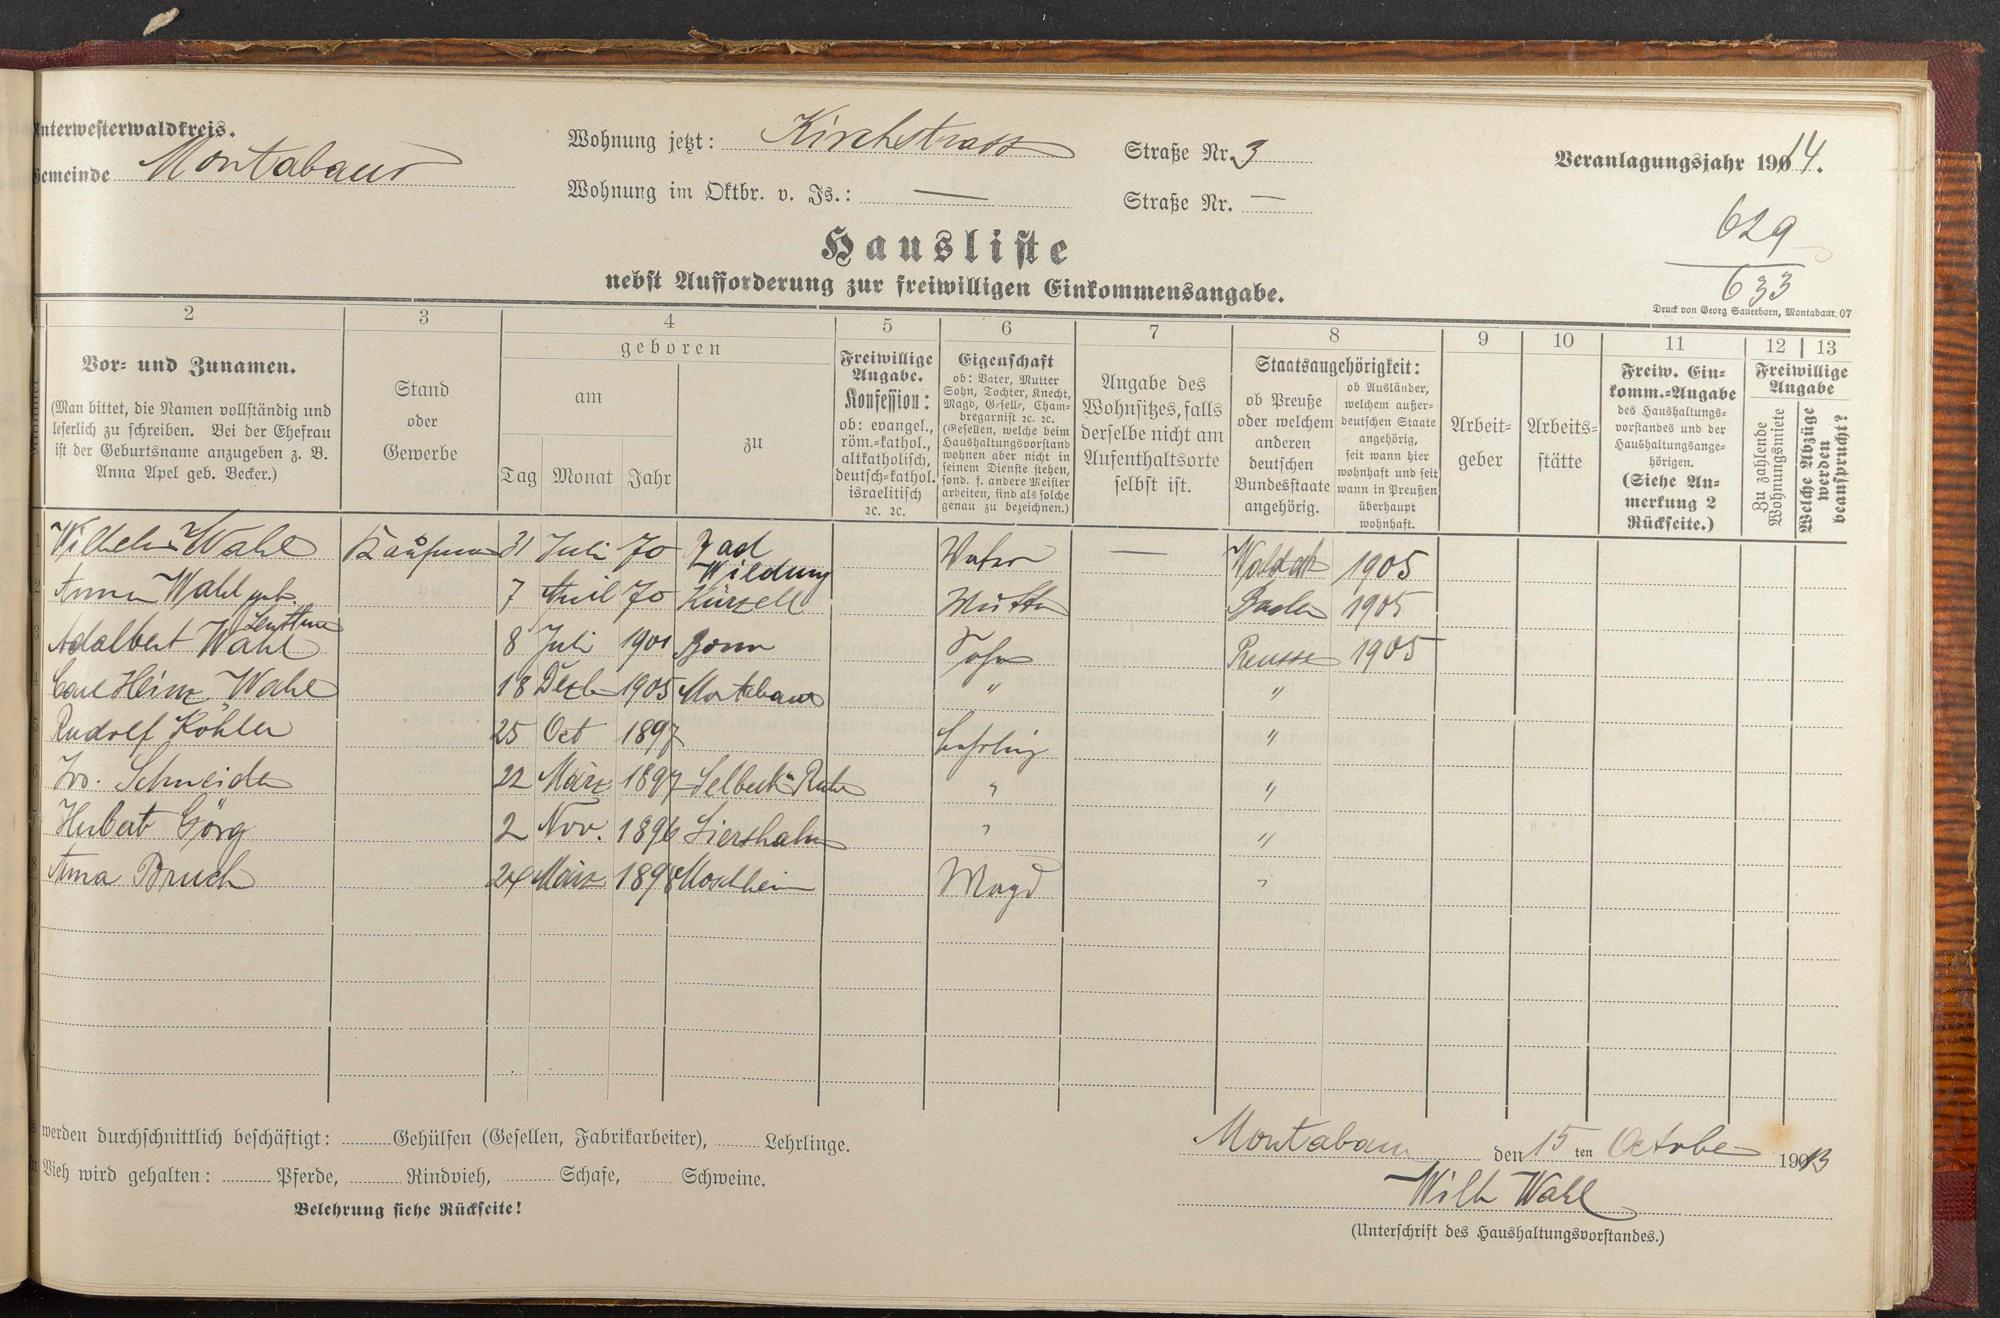 Unterwesterwaldkreis.
Gemeinde Montabaur
Wohnung jetzt: Kirchstrasse Straße Nr. 3
Wohnung im Oktbr. v. Js.: — Straße Nr. —
Veranlagungsjahr 19014.
629
633
Hausliste
nebst Aufforderung zur freiwilligen Einkommensangabe.
Druck von Georg Sauerborn, Montabaur. 07
1 2 3 4 5 6 7 8 9 10 11 12 13
Vor- und Zunamen.
(Man bittet, die Namen vollständig und
leserlich zu schreiben. Bei der Ehefrau
ist der Geburtsname anzugeben z. B.
Anna Apel geb. Becker.)
Stand
oder
Gewerbe
geboren
am
Tag Monat Jahr
zu
Freiwillige
Angabe.
Konfession:
ob: evangel.,
röm.-kathol.,
altkatholisch,
deutsch-kathol.
israelitisch
2c. 2c.
Eigenschaft
ob: Vater, Mutter
Sohn, Tochter, Knecht,
Magd, Geselle, Cham-
bregarnist 2c. 2c.
(Gesellen, welche beim
Haushaltungsvorstand
wohnen aber nicht in
seinem Dienste stehen,
sond. f. andere Meister
arbeiten, sind als solche
genau zu bezeichnen.)
Angabe des
Wohnsitzes, falls
derselbe nicht am
Aufenthaltsorte
selbst ist.
Staatsangehörigkeit:
ob Preuße
oder welchem
anderen
deutschen
Bundesstaate
angehörig.
ob Ausländer,
welchem außer-
deutschen Staate
angehörig,
seit wann hier
wohnhaft und seit
wann in Preußen
überhaupt
wohnhaft.
Arbeit-
geber
Arbeits-
stätte
Freiw. Ein-
komm.-Angabe
des Haushaltungs-
vorstandes und der
Haushaltungsange-
hörigen.
(Siehe An-
merkung 2
Rückseite.)
Freiwillige
Angabe
Zu zahlende
Wohnungsmiete
Welche Abzüge
werden
beansprucht?
1 Wilhelm Wahl Kaufmann 31 Juli 70 Bad Wildung Vater — Waldeck 1905
2 Anna Wahl geb. 7 April 70 Kürzell Mutter Baden 1905
3 Adalbert Wahl 8 Juli 1901 Bonn Sohn Preusse 1905
4 Carl Heinz Wahl 18 Dezb 1905 Montabaur " "
5 Rudolf Köhler 25 Oct 1897 Lehrling "
6 Schneider 22 März 1897 Selbeck " "
7 Herbert Görg 2 Nov. 1896 Siershahn " "
8 Anna Bruch 24 März 1898 Moschheim Magd "
werden durchschnittlich beschäftigt: Gehülfen (Gesellen, Fabrikarbeiter), Lehrlinge.
Vieh wird gehalten: Pferde, Rindvieh, Schafe, Schweine.
Belehrung siehe Rückseite!
Montabaur den 15 ten October 19013
Wilh Wahl
(Unterschrift des Haushaltungsvorstandes.)